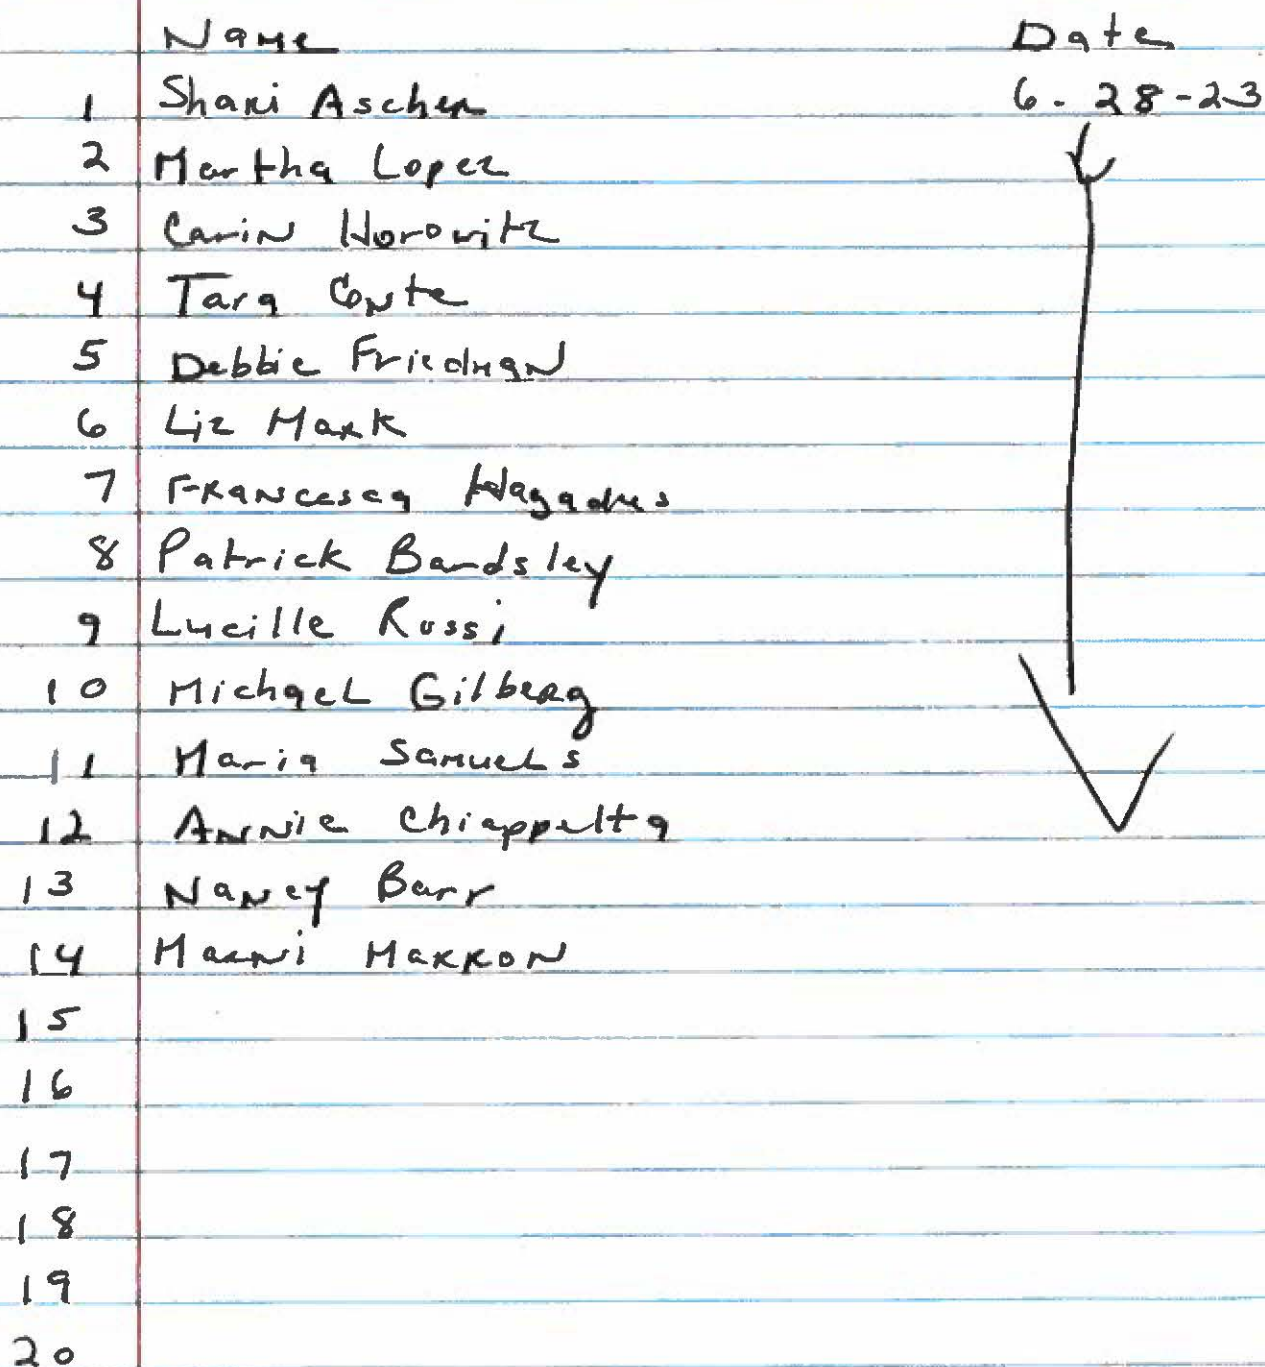 Name Date
1 Shari Ascher 6-28-23
2 Martha Lopez
3 Carin Horowitz
4 Tara Conte
5 Debbie Friedman
6 Liz Mark
7 Francesca
8 Patrick Bardsley
9 Lucille Rossi
10 Michael Gilberg
11 Maria Samuels
12 Annie Chiappetta
13 Nancy Barr
14 Marni Markon
15
16
17
18
19
20